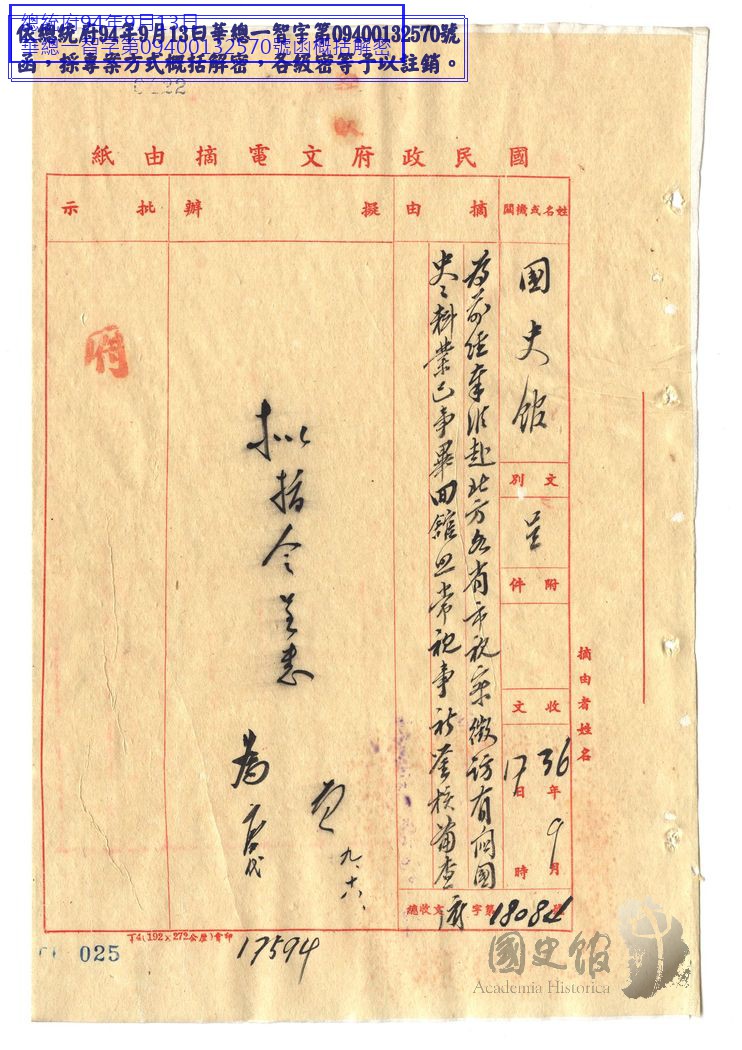 總統府94年9月13日
華總一智字第09400132570號函概括解密
依總統府94年9月13日華總一智字第09400132570號
函，採專案方式概括解密，各級密等予以註銷。
國民政府文電摘由紙
姓名或機關
國史館
文別
呈
附件
收文
36年9月17日時
摘由
為前經奉派赴北方各省市視察徵訪有關國
史史料業已事畢回館照常視事祈鑒核備查
擬辦
擬指令呈悉
九、十六、
批示
府
摘由者姓名
總收文 字第18084號
丁4(192×272公厘)育印
17594
025
國史館
Academia Historica